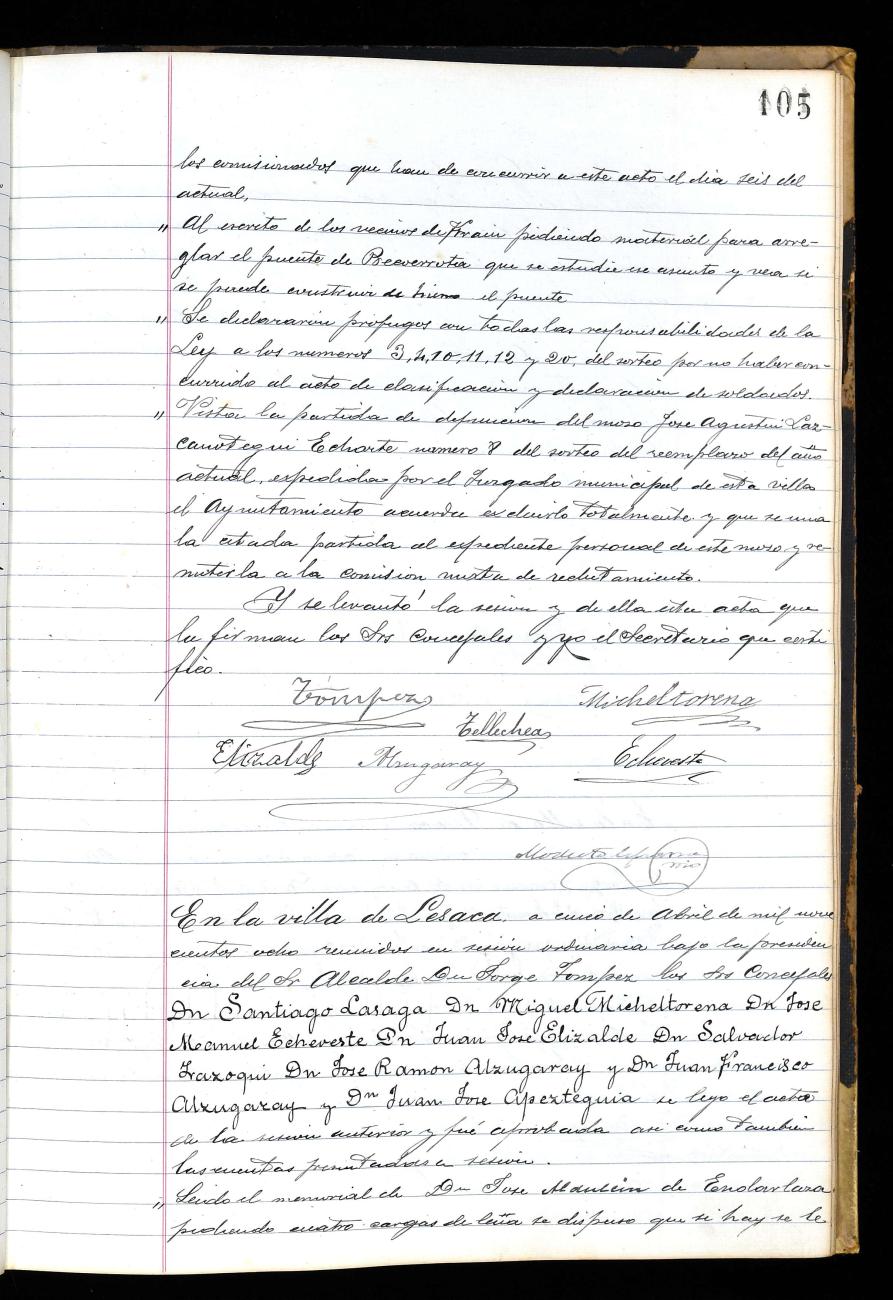 105
los comisionados que han de concurrir a este acto el dia seis del
actual,
" Al escrito de los vecinos de Frain pidiendo material para arre-
glar el puente de Becerrotia que se estudie ese asunto y vea si
se puede construir de hierro el puente
" Se declararon profugos con todas las responsabilidades de la
Ley a los numeros 3, 4, 10, 11, 12 y 20 del sorteo por no haber con-
currido al acto de clasificacion y declaracion de soldados.
" Vista la partida de defuncion del moso Jose Agustin Laz-
canotegui Echarte numero 8 del sorteo del reemplazo del año
actual, expedida por el Juzgado municipal de esta villa
el Ayuntamiento acuerda excluirlo totalmente y que se una
la citada partida al expediente personal de este moso y re-
mitirla a la comision mixta de reclutamiento.
Y se levantó la sesion y de ella esta acta que
la firman los Srs Concejales y yo el Secretario que certi
fico.
Tompez Micheltorena
Tellechea
Elizalde Alzugaray Echeveste
Modesto
En la villa de Lesaca a cinco de Abril de mil nove
cientos ocho reunidos en sesion ordinaria bajo la presiden
cia del Sr Alcalde Dn Jorge Tompez los Srs Concejales
Dn Santiago Lasaga Dn Miguel Micheltorena Dn Jose
Manuel Echeveste Dn Juan José Elizalde Dn Salvador
Irazoqui Dn Jose Ramon Alzugaray y Dn Juan Francisco
Alzugaray y Dn Juan Jose Apezteguia se leyo el acta
de la sesion anterior y fué aprobada asi como tambien
las cuentas presentadas en sesion.
" Leido el memorial de Dn Jose de Endarlaza
pidiendo cuatro cargas de leña se dispuso que si hay se le